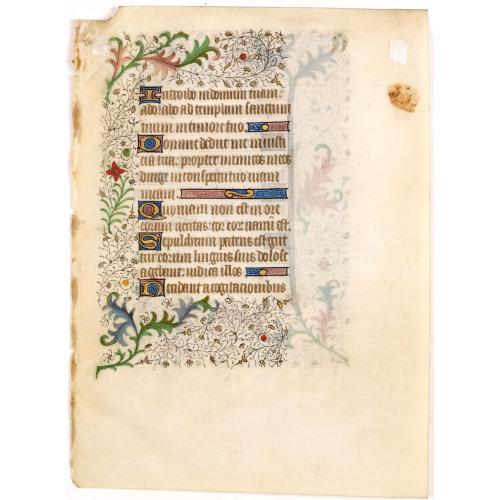 Introibo in domum tuam:
adorabo ad templum sanctum
tuum in timore tuo.
Domine deduc me in iusti
cia tua: propter inimicos meos
dirige in conspectu tuo uiam
meam.
Quoniam non est in ore
eorum ueritas: cor eorum uanū est.
Sepulchrum patens est gut
tur eorum linguis suis dolose
agebant: iudica illos
Decidant a cogitacionibus